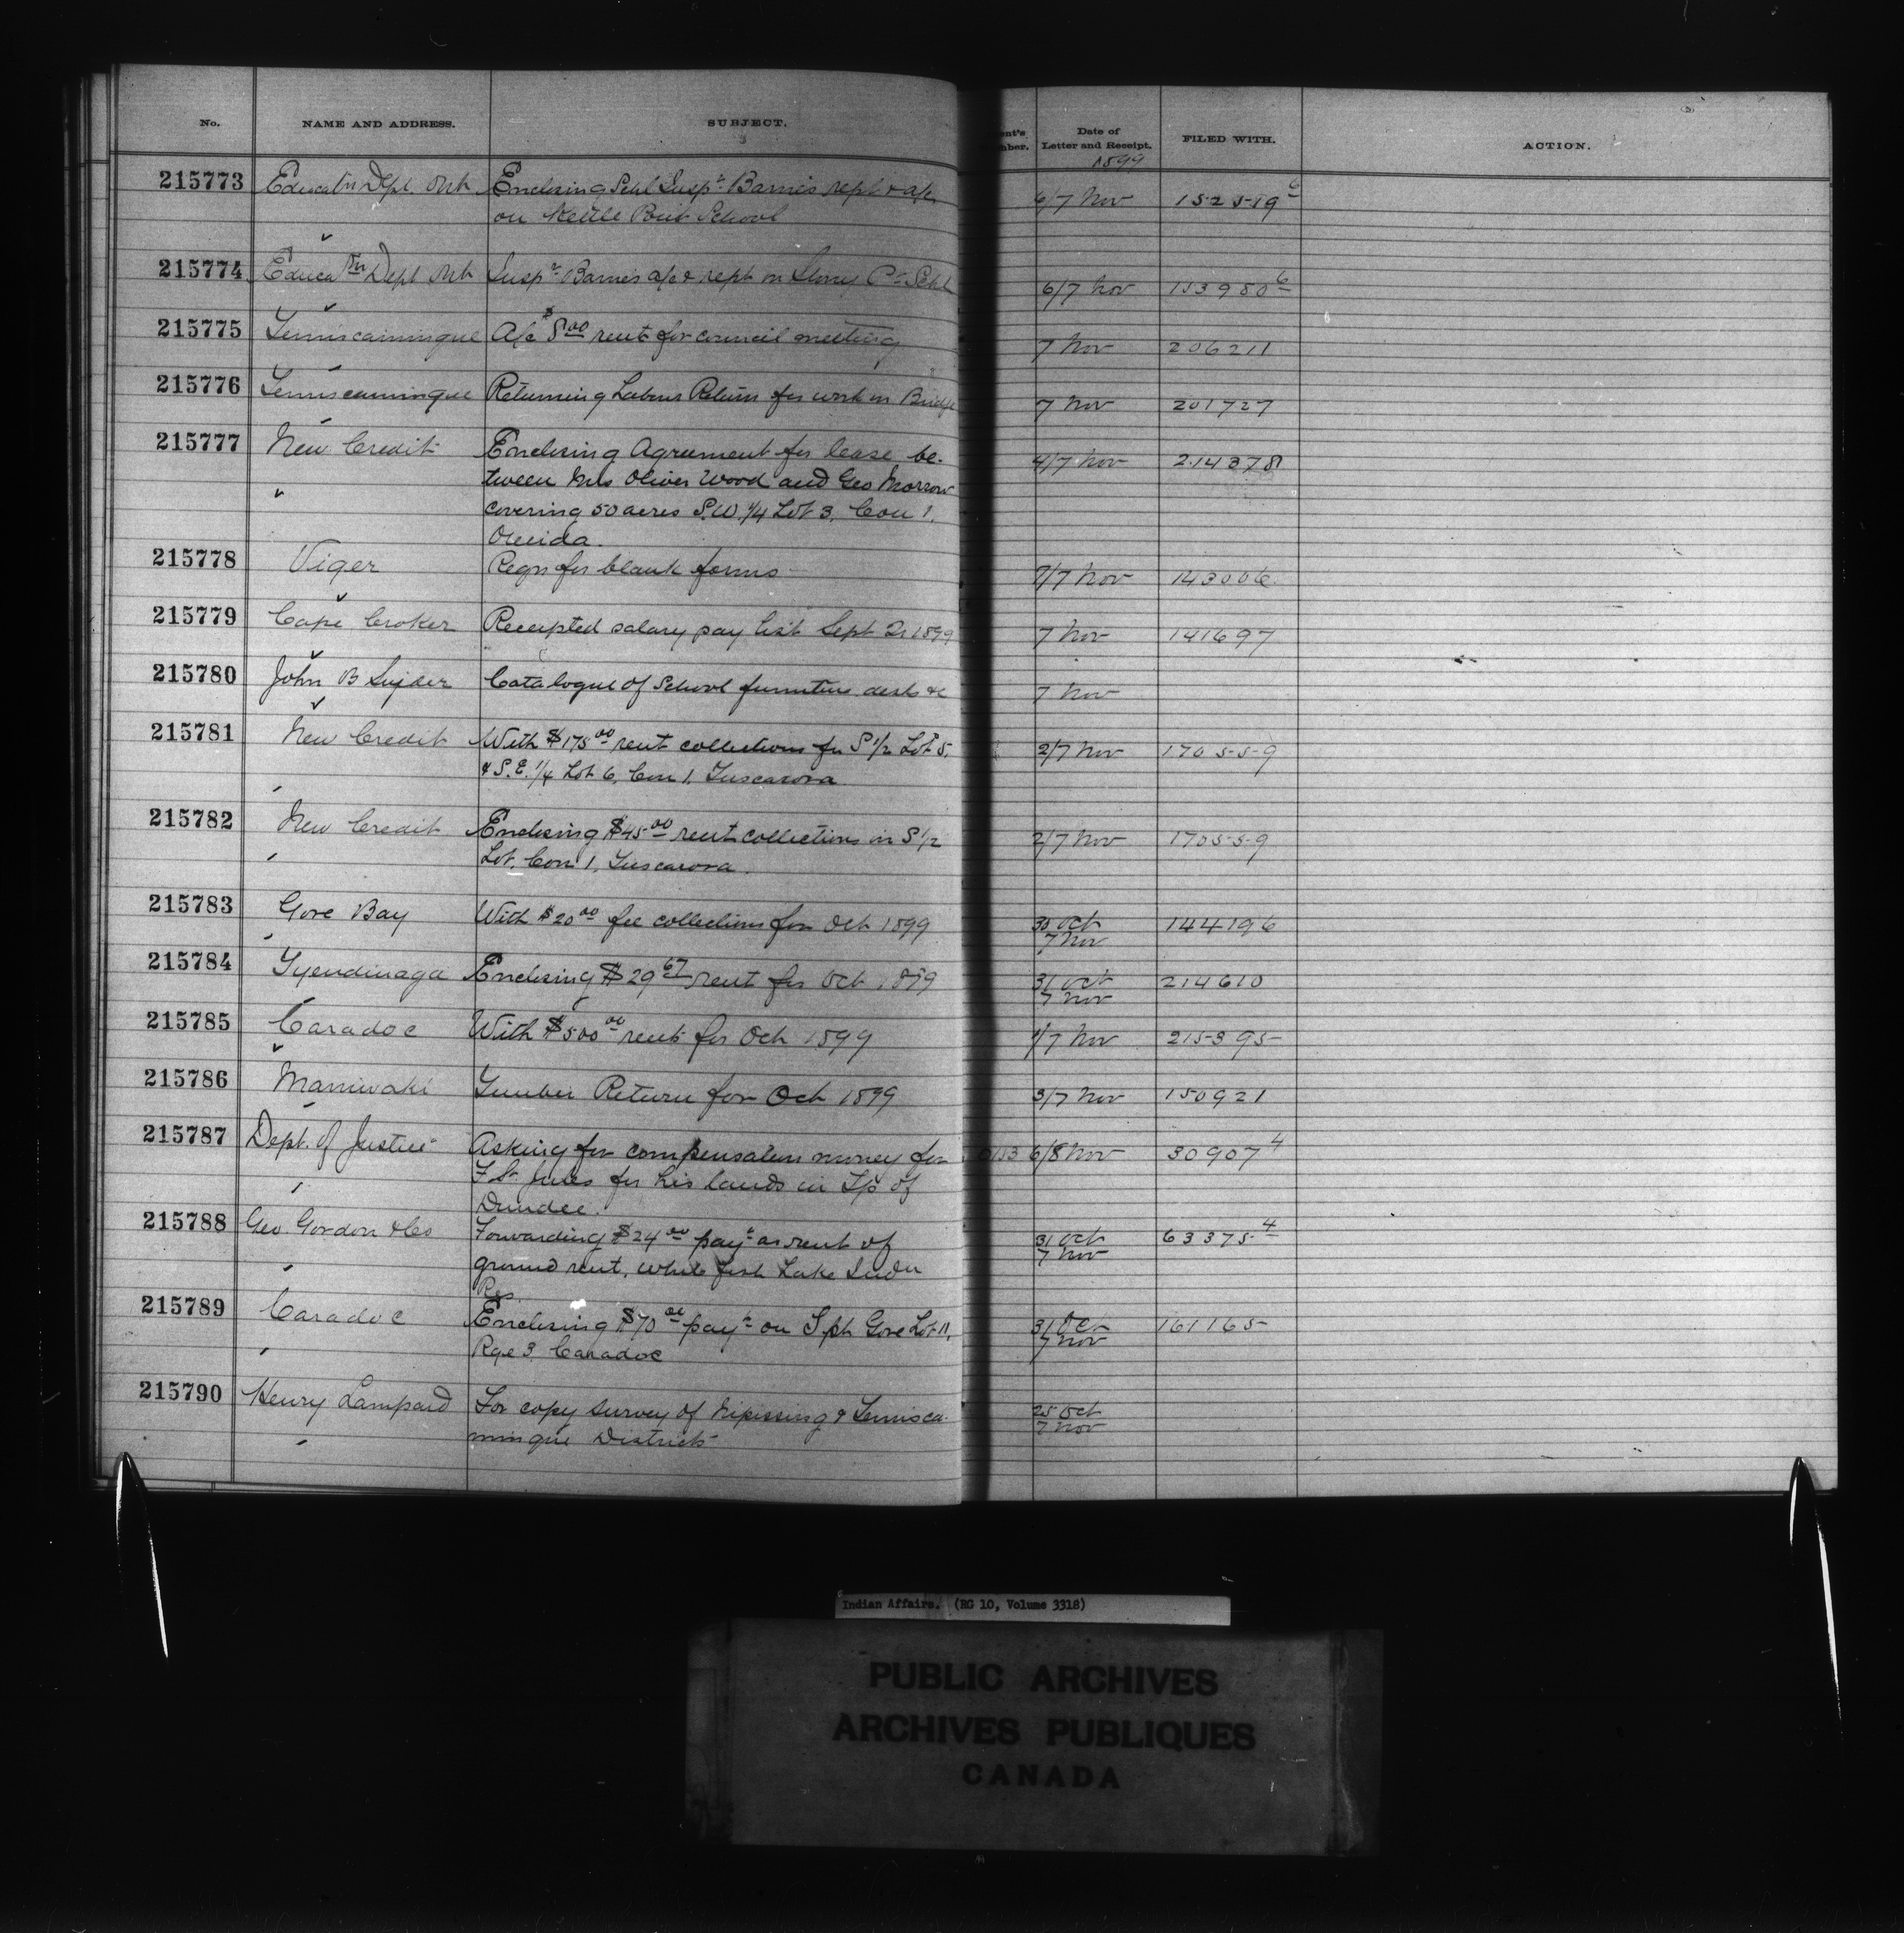 No. NAME AND ADDRESS. SUBJECT. Date of Letter and Receipt. FILED WITH. ACTION.
1899
215773 Educatn Dept. Ont. Enclosing Schl Inspr Barnes rept & a/c 6/7 Nov 152519 6
on Kettle Point School
215774 Educatn Dept Ont Inspr Barnes a/c & rept on Stony Pt Schl 6/7 Nov 153950 6
215775 Temiscamingue A/c $8 00 rent for council meeting 7 Nov 206211
215776 Temiscamingue Returning Labour Return for work on Bridge 7 Nov 201727
215777 New Credit Enclosing Agreement for lease be- 4/7 Nov 214378
tween Mrs Oliver Wood and Geo Morrow
covering 50 acres S.W. 1/4 Lot 3, Con 1,
Oneida.
215778 Viger Reqn for blank forms 7/7 Nov 143006
215779 Cape Croker Receipted salary pay list Sept Qr 1899 7 Nov 141697
215780 John B Snider Catalogue of School furniture desk &c 7 Nov
215781 New Credit With $175 00 rent collections for S 1/2 Lot 5, 2/7 Nov 170559
& S.E. 1/4 Lot 6, Con 1, Tuscarora
215782 New Credit Enclosing $45 00 rent collections on S 1/2 2/7 Nov 170559
Lot, Con 1, Tuscarora.
215783 Gore Bay With $20 00 fee collections for Oct 1899 30 Oct 144196
7 Nov
215784 Tyendinaga Enclosing $29 67 rent for Oct 1899 31 Oct 214610
7 Nov
215785 Caradoc With $500 00 rent for Oct 1899 1/7 Nov 215395
215786 Maniwaki Timber Return for Oct 1899 3/7 Nov 150921
215787 Dept. of Justice Asking for compensation money for 6/8 Nov 30907 4
F St. Jules for his lands in Tp of
Dundee.
215788 Geo. Gordon & Co Forwarding $24 00 payt as rent of 31 Oct 63375 4
7 Nov
ground rent, White fish Lake Indn
Res.
215789 Caradoc Enclosing $70 00 payt on S pt Gore Lot 11, 31 Oct 161165
7 Nov
Rge 3, Caradoc
215790 Henry Lampard For copy survey of Nipissing & Temisca- 25 Oct
7 Nov
mingue Districts
Indian Affairs. (RG 10, Volume 3318)
PUBLIC ARCHIVES
ARCHIVES PUBLIQUES
CANADA